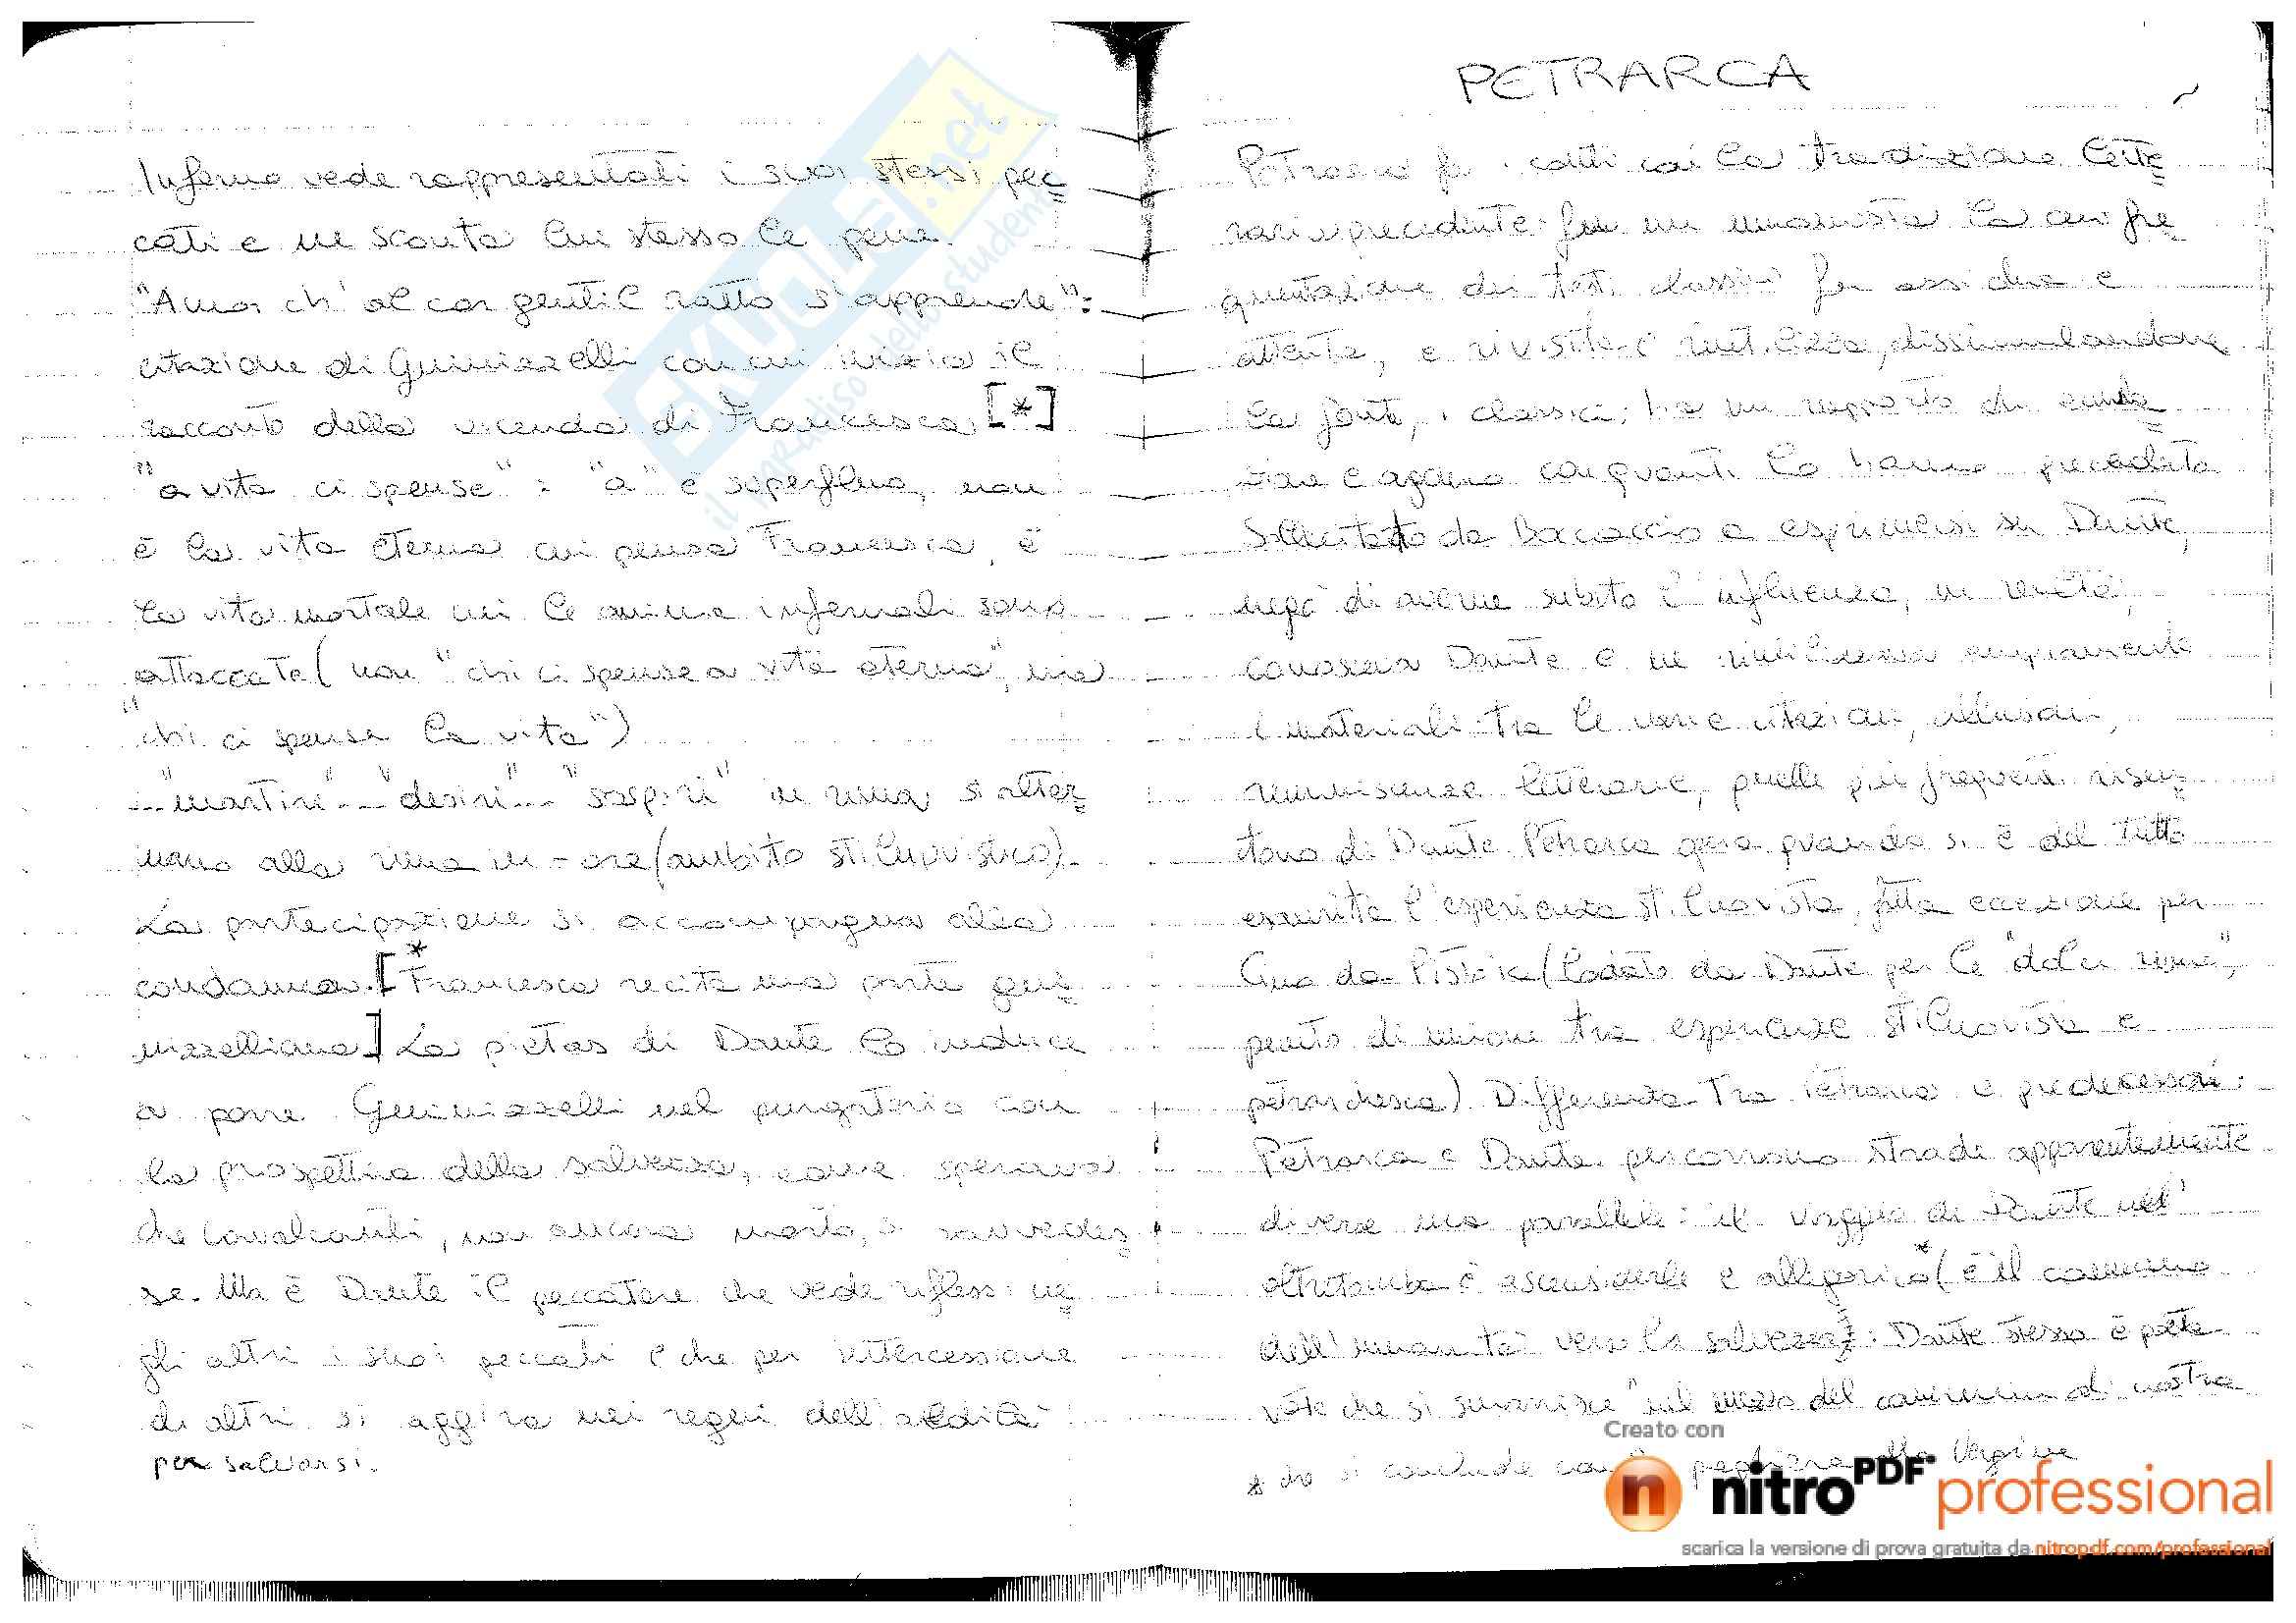 Inferno vede rappresentati i suoi stessi pec=
cati e ne sconta lui stesso le pene.
"Amor ch'al cor gentil ratto s'apprende":
citazione di Guinizzelli con cui inizia il
racconto della vicenda di Francesca [*]
"a vita ci spense": "a" è superflua, non
è la vita eterna cui pensa Francesca, è
la vita mortale cui le anime infernali sono
attaccate (non "chi ci spense a vita eterna", ma
"chi ci spense la vita")
"martiri" "desiri" "sospiri" in rima si alter=
nano alla rima in -ore (ambito stilnovistico).
La partecipazione si accompagna alla
condanna. [* Francesca recita una parte gui=
nizzelliana] La pietas di Dante lo induce
a porre Guinizzelli nel purgatorio con
la prospettiva della salvezza, come sperava
che Cavalcanti, non ancora morto, si ravvedes=
se. Ma è Dante il peccatore che vede riflessi ne=
gli altri i suoi peccati e che per intercessione
di altri si aggira nei regni dell'aldilà
per salvarsi.
PETRARCA
Petrarca fa i conti con la tradizione lette=
raria precedente: fu un umanista la cui fre=
quentazione dei testi classici fu assidua e
attenta, e rivisita e riutilizza, dissimulandone
la fonte, i classici; ha un rapporto di emula=
zione e agone con quanti lo hanno preceduto
Sollecitato da Boccaccio a esprimersi su Dante,
negò di averne subito l'influenza, in verità,
conosceva Dante e ne riutilizzava ampiamente
i materiali: tra le varie citazioni, allusioni,
reminiscenze letterarie, quelle più frequenti risen=
tono di Dante. Petrarca opera quando si è del tutto
esaurita l'esperienza stilnovista, fatta eccezione per
Cino da Pistoia (lodato da Dante per le "dolci rime",
punto di unione tra esperienze stilnovista e
petrarchesca). Differenza tra Petrarca e predecessori:
Petrarca e Dante percorrono strade apparentemente
diverse ma parallele: il viaggio di Dante nell'
oltretomba è ascensionale e allegorico* (è il cammino
dell'umanità verso la salvezza): Dante stesso è poeta
vate che si smarrisce "nel mezzo del cammin di nostra
* che si conclude con la preghiera alla Vergine
SKUOLA.net
il paradiso dello studente
Creato con
nitro PDF professional
scarica la versione di prova gratuita da nitropdf.com/professional